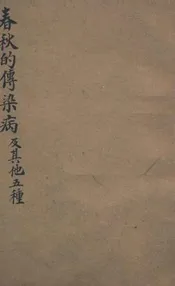 春秋的傳染病及其他五種